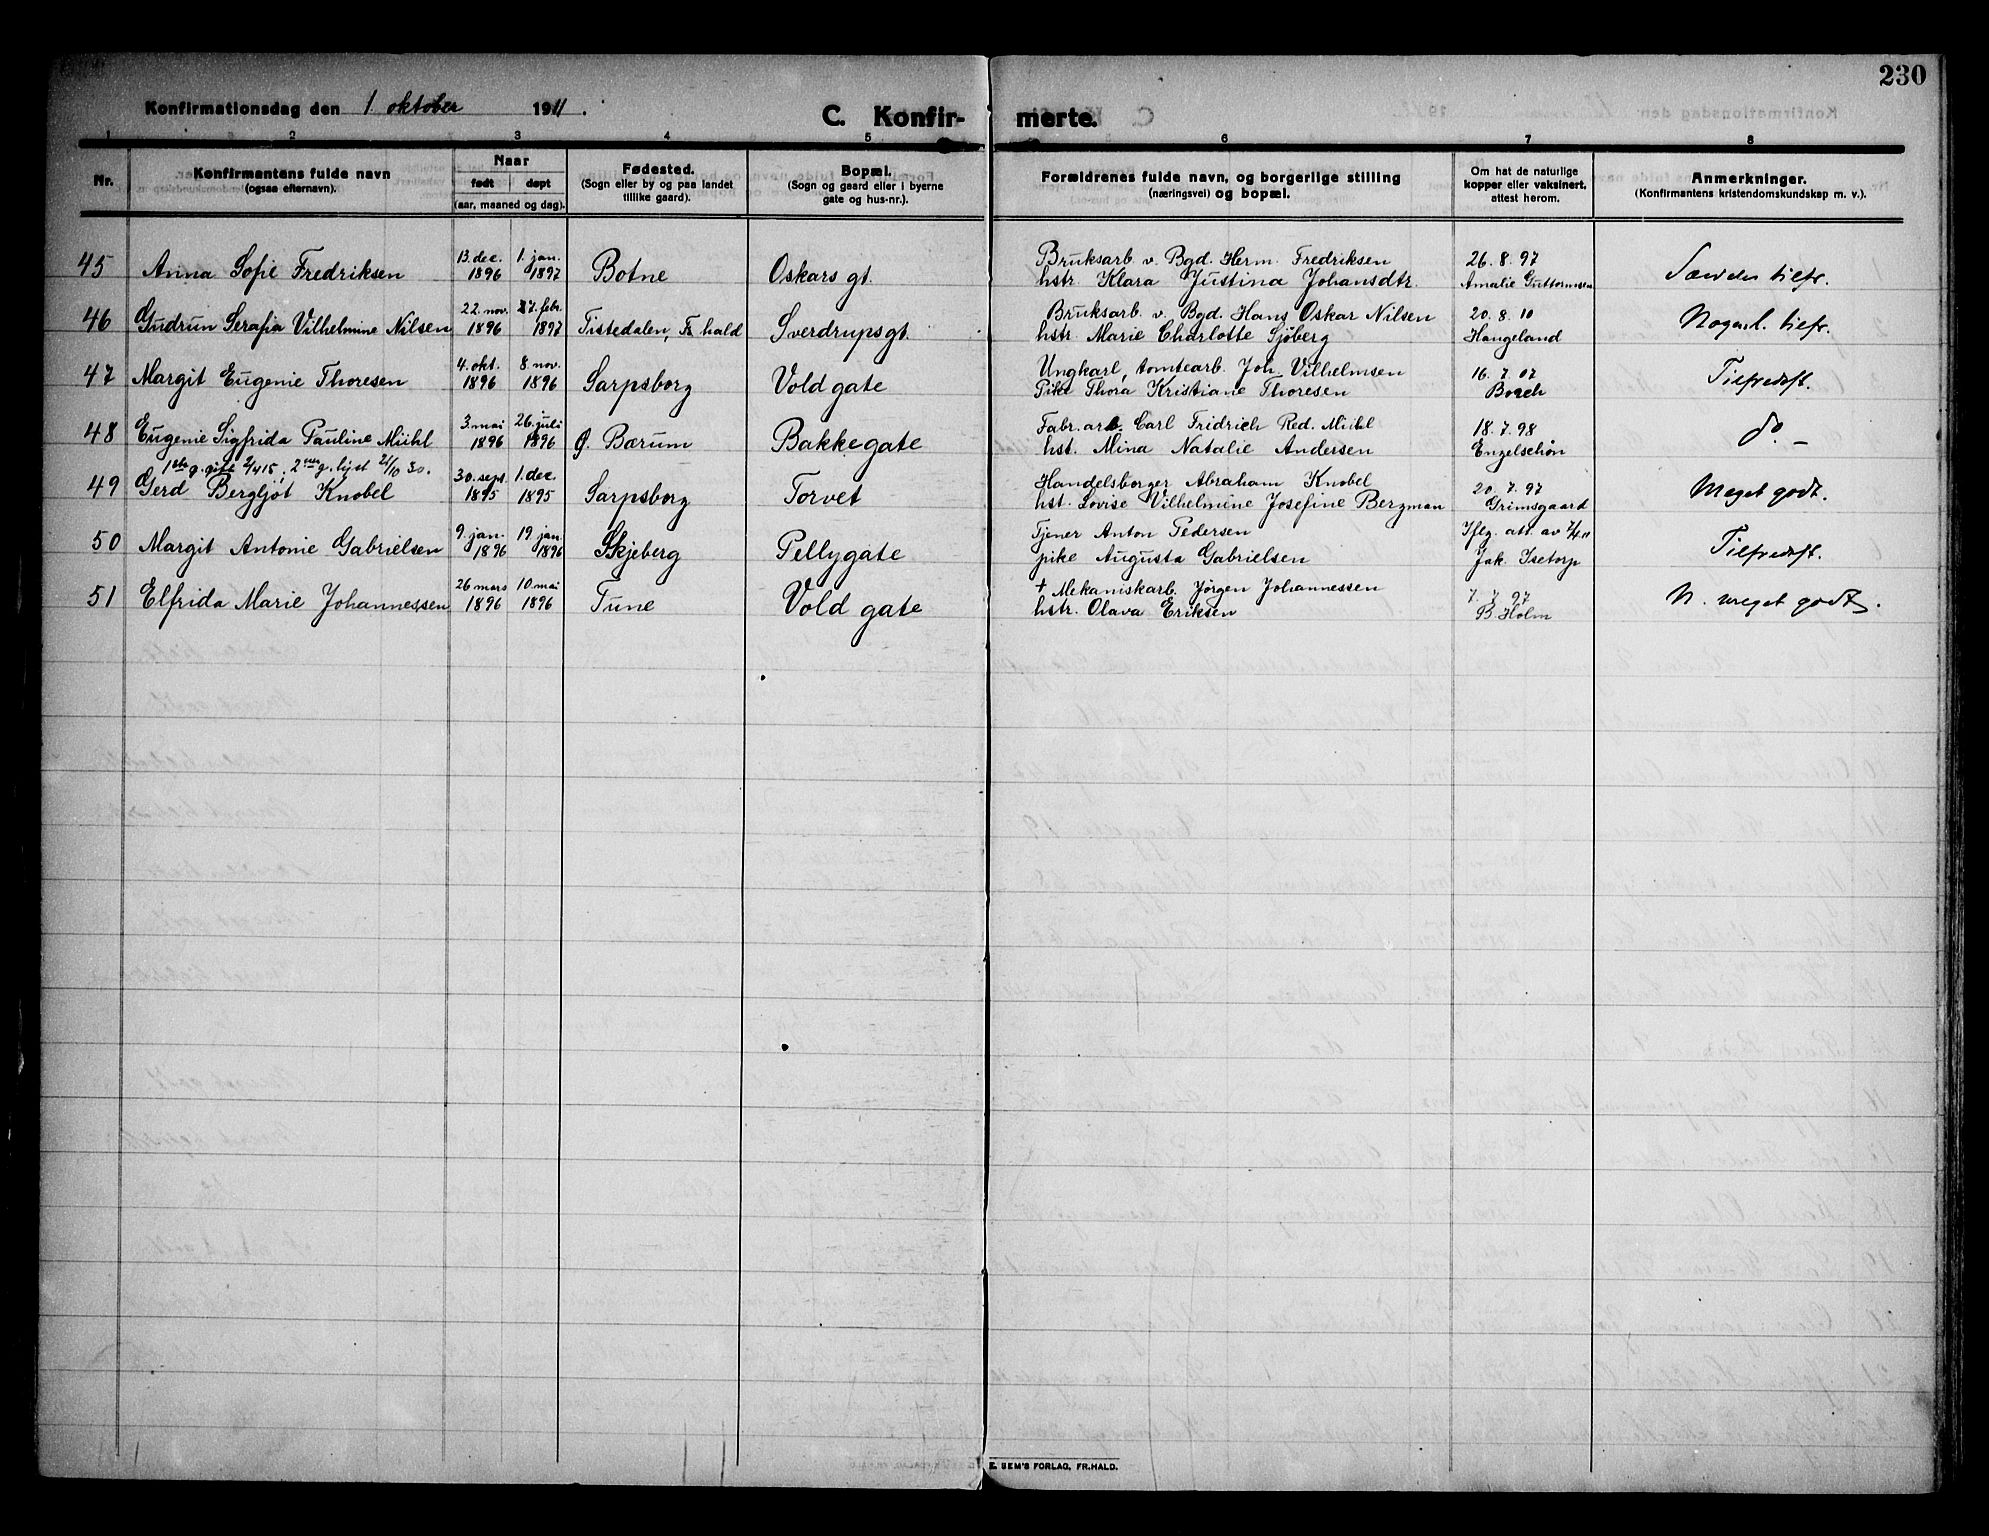 230
Konfirmationsdag den 1. oktober 1911.
C. Konfir- merte.
1 2 3 4 5 6 7 8
Nr.
Konfirmantens fulde navn
(ogsaa efternavn).
Naar
født døpt
(aar, maaned og dag).
Fødested.
(Sogn eller by og paa landet
tillike gaard).
Bopæl.
(Sogn og gaard eller i byerne
gate og hus-nr.).
Forældrenes fulde navn, og borgerlige stilling
(næringsvei) og bopæl.
Om hat de naturlige
kopper eller vaksinert,
attest herom.
Anmerkninger.
(Konfirmantens kristendomskundskap m. v.).
13. dec. 1. jan. Bruksarb. v. Bgd. Herm. Fredriksen 26.8.97
45 Anna Sofie Fredriksen 1896 1897 Botne Oskars gt. hstr. Klara Justina Johansdtr. Amalie Guttormsen Særdeles tilfr.
22. nov. 27. febr. Bruksarb. v. Bgd. Hans Oskar Nilsen 20.8.10
46 Gudrun Serafia Vilhelmine Nilsen 1896 1897 Tistedalen, Fr.hald Sverdrupsgt. hstr. Marie Charlotte Sjøberg Hangeland Nogenl. tilfr.
4. okt. 8. nov. Ungkarl, tomtearb. Joh. Vilhelmsen 16.7.07
47 Margit Eugenie Thoresen 1896 1896 Sarpsborg Voldgate Pike Thora Kristiane Thoresen Borch Tilfredsst.
3. mai 26. juli Fabr.arb. Carl Fridrich Red. Mühl 18.7.98
48 Eugenie Sigfrida Pauline Mühl 1896 1896 Ø. Bærum Bakkegate hst. Mina Natalie Andersen Engelschøn do. –
1ste g. gift 2/4 15, 2den g. lyst 21/10 30.
30. sept. 1. dec. Handelsborger Abraham Knobel 20.7.97
49 Gerd Bergljot Knobel 1895 1895 Sarpsborg Torvet hst. Lovise Vilhelmine Josefine Bergman Grimsgaard Meget godt.
9. jan. 19. jan. Tjener Anton Pedersen Iflg. att. av
50 Margit Antonie Gabrielsen 1896 1896 Skjeberg Pellygate pike Augusta Gabrielsen Jak. Isetorp Tilfredsst.
26 mars 10. mai † Mekaniskarb. Jørgen Johannessen 7.7.97
51 Elfrida Marie Johannessen 1896 1896 Tune Voldgate hstr. Olava Eriksen B. Holm N. meget godt.
E. SEM'S FORLAG, FR.HALD.